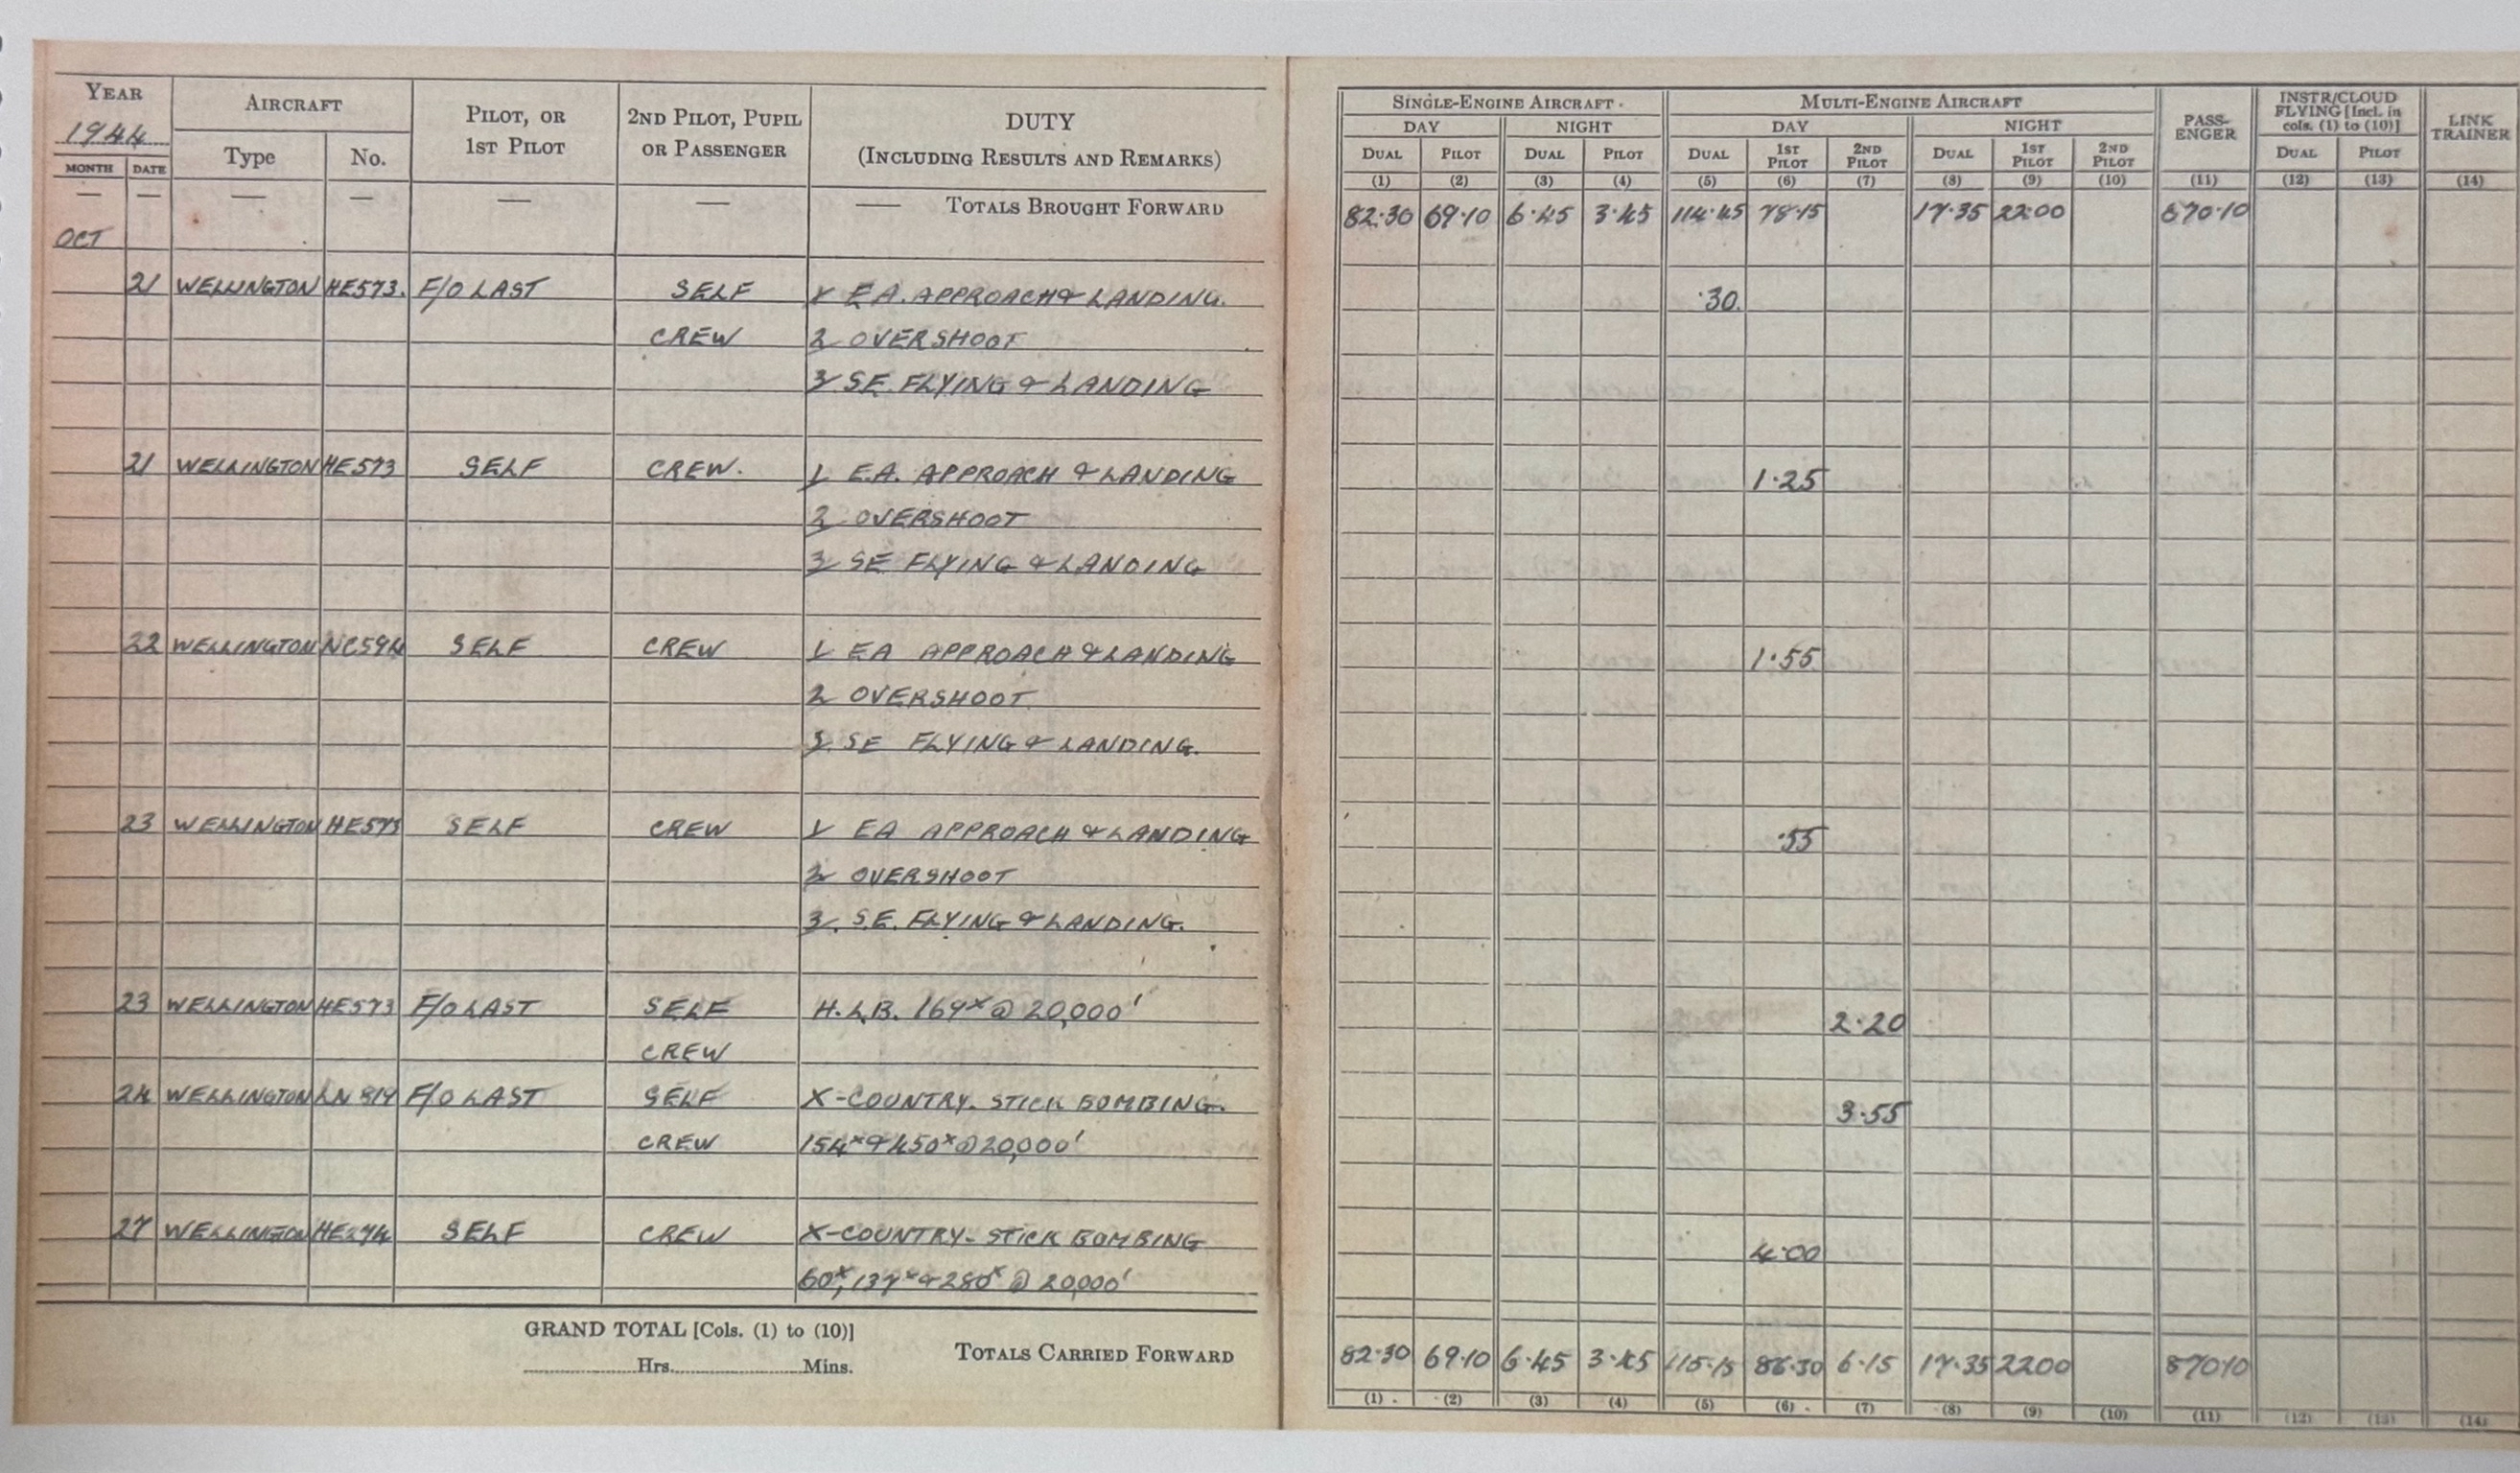 YEAR 1944 AIRCRAFT PILOT, OR 1ST PILOT 2ND PILOT, PUPIL OR PASSENGER DUTY (INCLUDING RESULTS AND REMARKS)
MONTH DATE Type No.
— — — — — — — TOTALS BROUGHT FORWARD
OCT
21 WELLINGTON HE573. F/O LAST SELF 1 EA. APPROACH & LANDING.
CREW 2 OVERSHOOT
3 SE. FLYING & LANDING
21 WELLINGTON HE573 SELF CREW. 1 E.A. APPROACH & LANDING
2 OVERSHOOT
3 SE FLYING & LANDING
22 WELLINGTON NC594 SELF CREW 1 EA APPROACH & LANDING
2 OVERSHOOT
3 SE FLYING & LANDING.
23 WELLINGTON HE573 SELF CREW 1 EA APPROACH & LANDING
2 OVERSHOOT
3. S.E. FLYING & LANDING.
23 WELLINGTON HE573 F/O LAST SELF H.L.B. 169x @ 20,000'
CREW
24 WELLINGTON LN 819 F/O LAST SELF X-COUNTRY. STICK BOMBING.
CREW 154x & 450x @ 20,000'
27 WELLINGTON HE274 SELF CREW X-COUNTRY- STICK BOMBING
60x, 137x & 280x @ 20,000'
GRAND TOTAL [Cols. (1) to (10)]
Hrs. Mins.
TOTALS CARRIED FORWARD
SINGLE-ENGINE AIRCRAFT MULTI-ENGINE AIRCRAFT PASS-ENGER INSTR/CLOUD FLYING [Incl. in cols. (1) to (10)] LINK TRAINER
DAY NIGHT DAY NIGHT
DUAL PILOT DUAL PILOT DUAL 1ST PILOT 2ND PILOT DUAL 1ST PILOT 2ND PILOT DUAL PILOT
(1) (2) (3) (4) (5) (6) (7) (8) (9) (10) (11) (12) (13) (14)
82·30 69·10 6·45 3·45 114·45 78·15 17·35 22·00 870·10
·30.
1·25
1·55
·55
2·20
3·55
4·00
82·30 69·10 6·45 3·45 115·15 86·30 6·15 17·35 22·00 870·10
(1) (2) (3) (4) (5) (6) (7) (8) (9) (10) (11) (12) (13) (14)